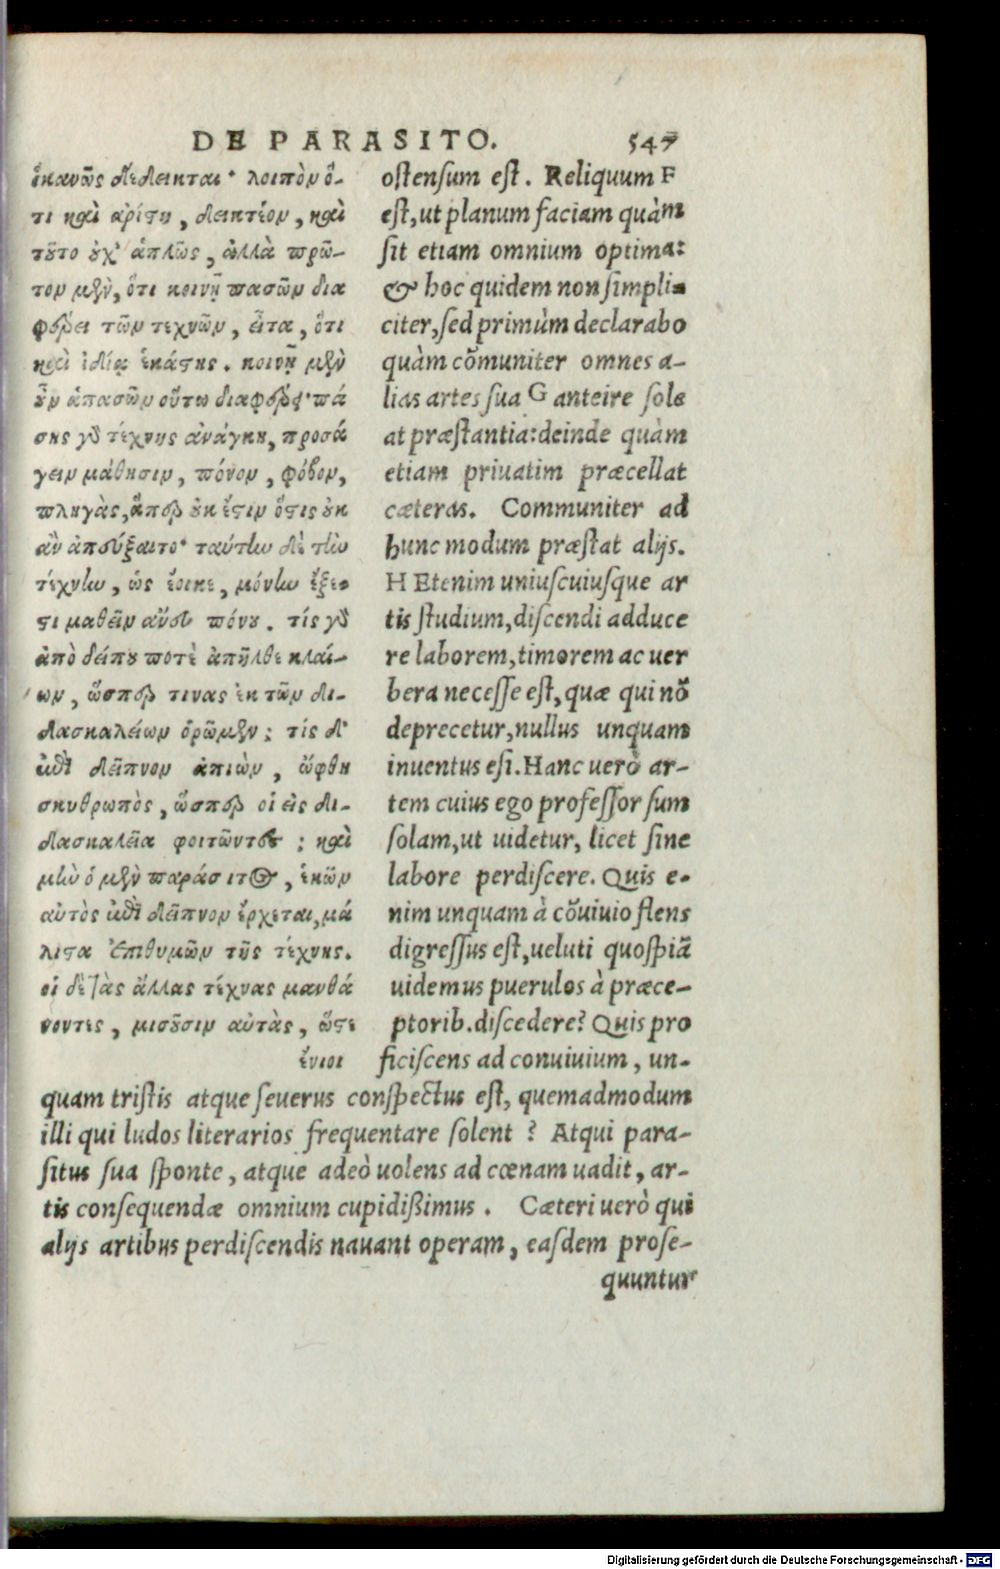 DE PARASITO. 547
ἱκανῶς δέδεικται· λοιπὸν ὅ-
τι καὶ ἀρίστη, δεικτέον, καὶ
τοῦτο οὐχ᾽ ἁπλῶς, ἀλλὰ πρῶ-
τον μὲν, ὅτι κοινῇ πασῶν δια
φέρει τῶν τεχνῶν, εἶτα, ὅτι
καὶ ἰδίᾳ ἑκάστης. κοινῇ μὲν
οὖν ἁπασῶν οὕτω διαφέρει· πά
σης γὰρ τέχνης ἀνάγκη, προσά
γειν μάθησιν, πόνον, φόβον,
πληγὰς, ἅπερ οὐκ ἔστιν ὅστις οὐκ
ἂν ἀπεύξαιτο· ταύτην δὲ τὴν
τέχνην, ὡς ἔοικε, μόνην ἔξε-
στι μαθεῖν ἄνευ πόνου. τίς γὰρ
ἀπὸ δείπου ποτὲ ἀπῆλθε κλαί-
ων, ὥσπερ τινας ἐκ τῶν δι-
δασκαλείων ὁρῶμεν; τίς δ᾽
ἐπὶ δεῖπνον ἀπιὼν, ὤφθη
σκυθρωπὸς, ὥσπερ οἱ εἰς δι-
δασκαλεῖα φοιτῶντες; καὶ
μὴν ὁ μὲν παράσιτος, ἑκὼν
αὐτὸς ἐπὶ δεῖπνον ἔρχεται, μά
λιστα ἐπιθυμῶν τῆς τέχνης.
οἱ δὲ τὰς ἄλλας τέχνας μανθά
νοντες, μισοῦσιν αὐτὰς, ὥστε
ἔνιοι
ostensum est. Reliquum F
est, ut planum faciam quàm
sit etiam omnium optima:
& hoc quidem non simpli-
citer, sed primùm declarabo
quàm cõmuniter omnes a-
lias artes sua G anteire sole
at præstantia: deinde quàm
etiam priuatim præcellat
cæteras. Communiter ad
hunc modum præstat alijs.
H Etenim uniuscuiusque ar
tis studium, discendi adduce
re laborem, timorem ac uer
bera necesse est, quæ qui nõ
deprecetur, nullus unquam
inuentus est. Hanc uerò ar-
tem cuius ego professor sum
solam, ut uidetur, licet sine
labore perdiscere. Quis e-
nim unquam à cõuiuio flens
digressus est, ueluti quospiã
uidemus puerulos à præce-
ptorib. discedere? Quis pro
ficiscens ad conuiuium, un-
quam tristis atque seuerus conspectus est, quemadmodum
illi qui ludos literarios frequentare solent? Atqui para-
situs sua sponte, atque adeò uolens ad cœnam uadit, ar-
tis consequendæ omnium cupidißimus. Cæteri uerò qui
alijs artibus perdiscendis nauant operam, easdem prose-
quuntur
Digitalisierung gefördert durch die Deutsche Forschungsgemeinschaft - DFG